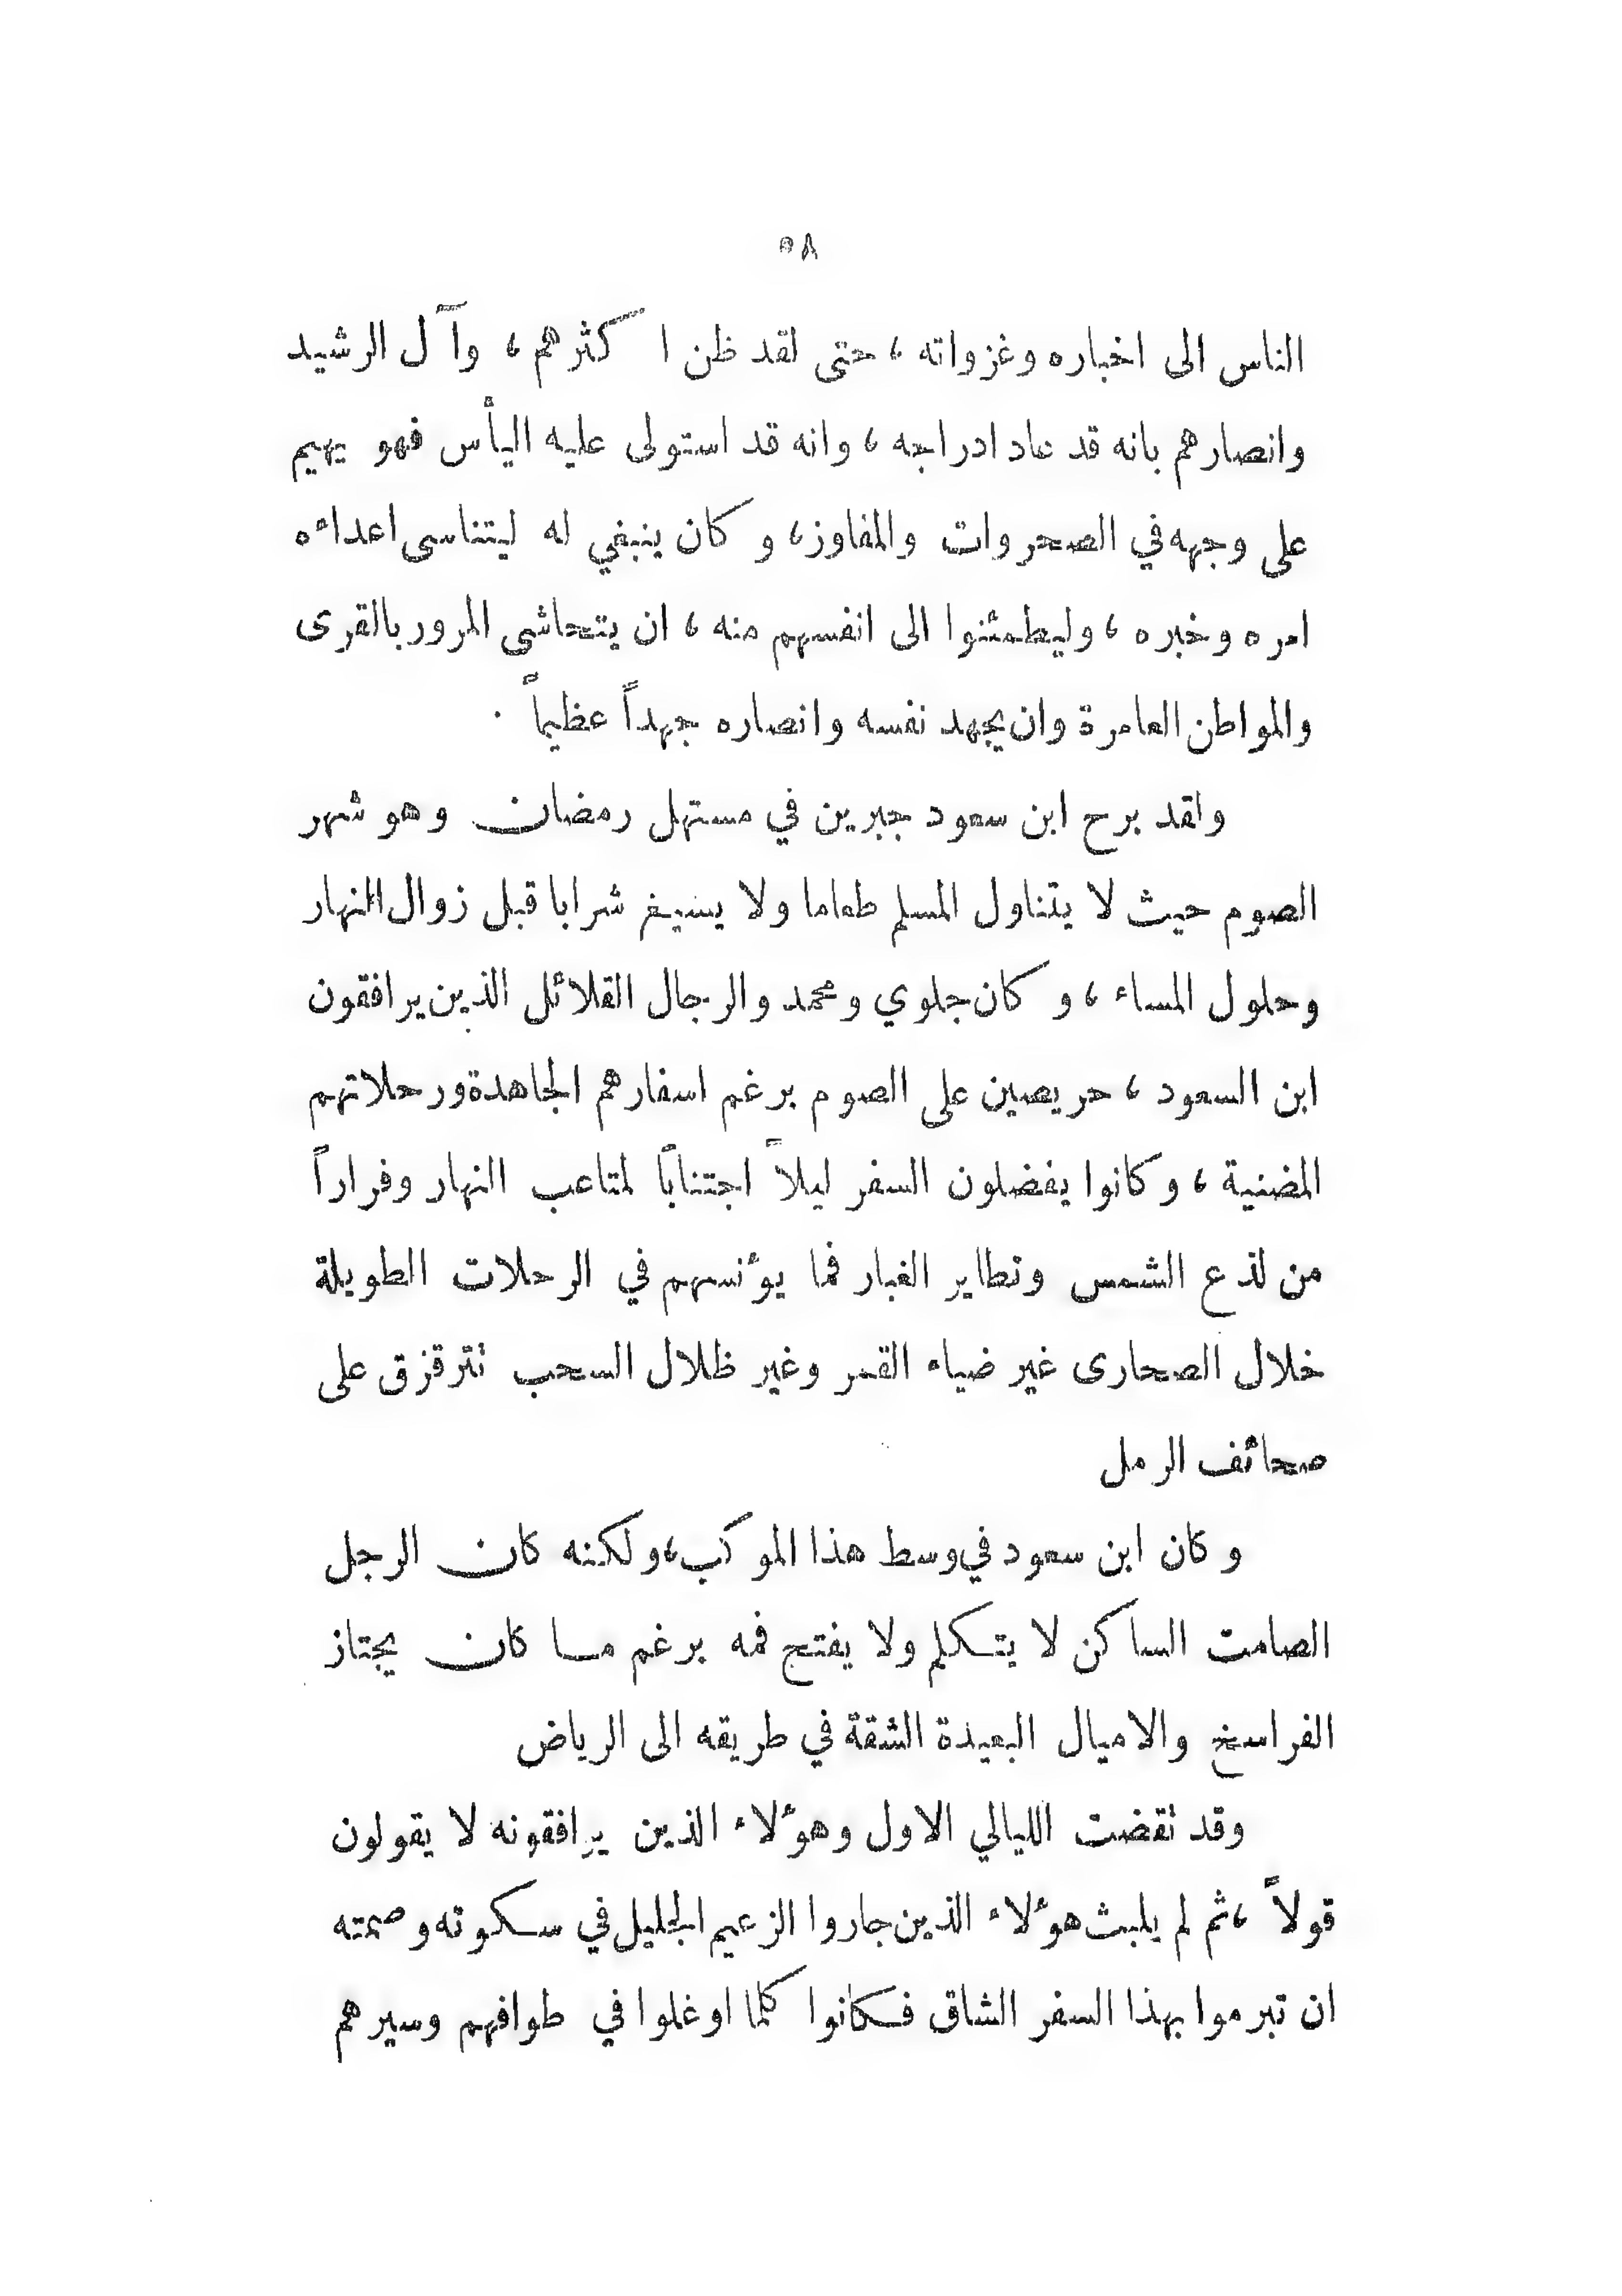 ٥٨
الناس الى اخباره وغزواته ، حتى لقد ظن اكثرهم ، وآل الرشيد
وانصارهم بانه قد عاد ادراجه ، وانه قد استولى عليه اليأس فهو يهيم
على وجهه في الصحروات والمفاوز ، وكان ينبغي له ليتناسى اعداءه
امره وخبره ، وليطمئنوا الى انفسهم منه ، ان يتحاشى المرور بالقرى
والمواطن العامرة وان يجهد نفسه وانصاره جهداً عظيماً .
ولقد برح ابن سعود جبرين في مستهل رمضان وهو شهر
الصوم حيث لا يتناول المسلم طعاما ولا يسيغ شرابا قبل زوال النهار
وحلول المساء ، وكان جلوي ومحمد والرجال القلائل الذين يرافقون
ابن السعود ، حريصين على الصوم برغم اسفارهم الجاهدة ورحلاتهم
المضنية ، وكانوا يفضلون السفر ليلاً اجتناباً لمتاعب النهار وفراراً
من لذع الشمس وتطاير الغبار فما يؤنسهم في الرحلات الطويلة
خلال الصحارى غير ضياء القمر وغير ظلال السحب تترقزق على
صحائف الرمل
وكان ابن سعود في وسط هذا الموكب ، ولكنه كان الرجل
الصامت الساكن لا يتكلم ولا يفتح فمه برغم ما كان يجتاز
الفراسخ والاميال البعيدة الشقة في طريقه الى الرياض
وقد تقضت الليالي الاول وهؤلاء الذين يرافقونه لا يقولون
قولاً ، ثم لم يلبث هؤلاء الذين جاروا الزعيم الجليل في سكوته وصمته
ان تبرموا بهذا السفر الشاق فكانوا كلما اوغلوا في طوافهم وسيرهم